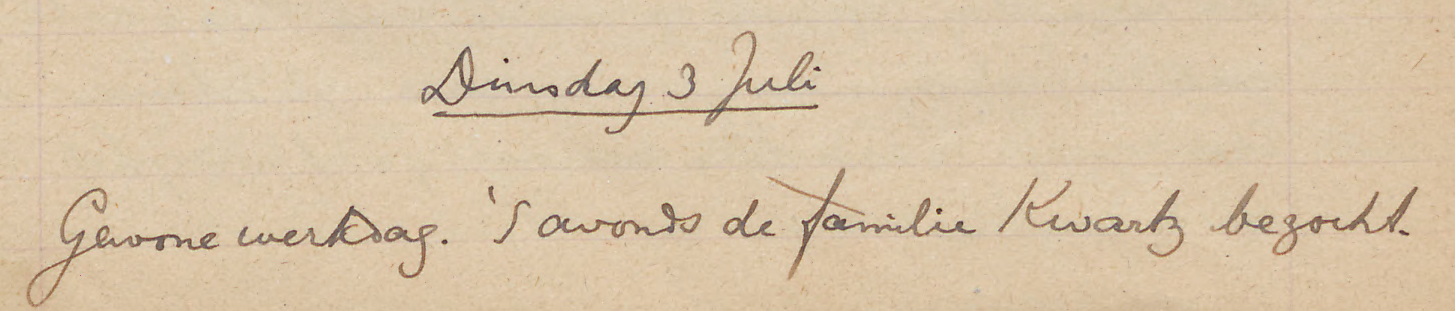 Dinsdag 3 Juli
Gewone werkdag. 'S avonds de familie Kwartz bezocht.